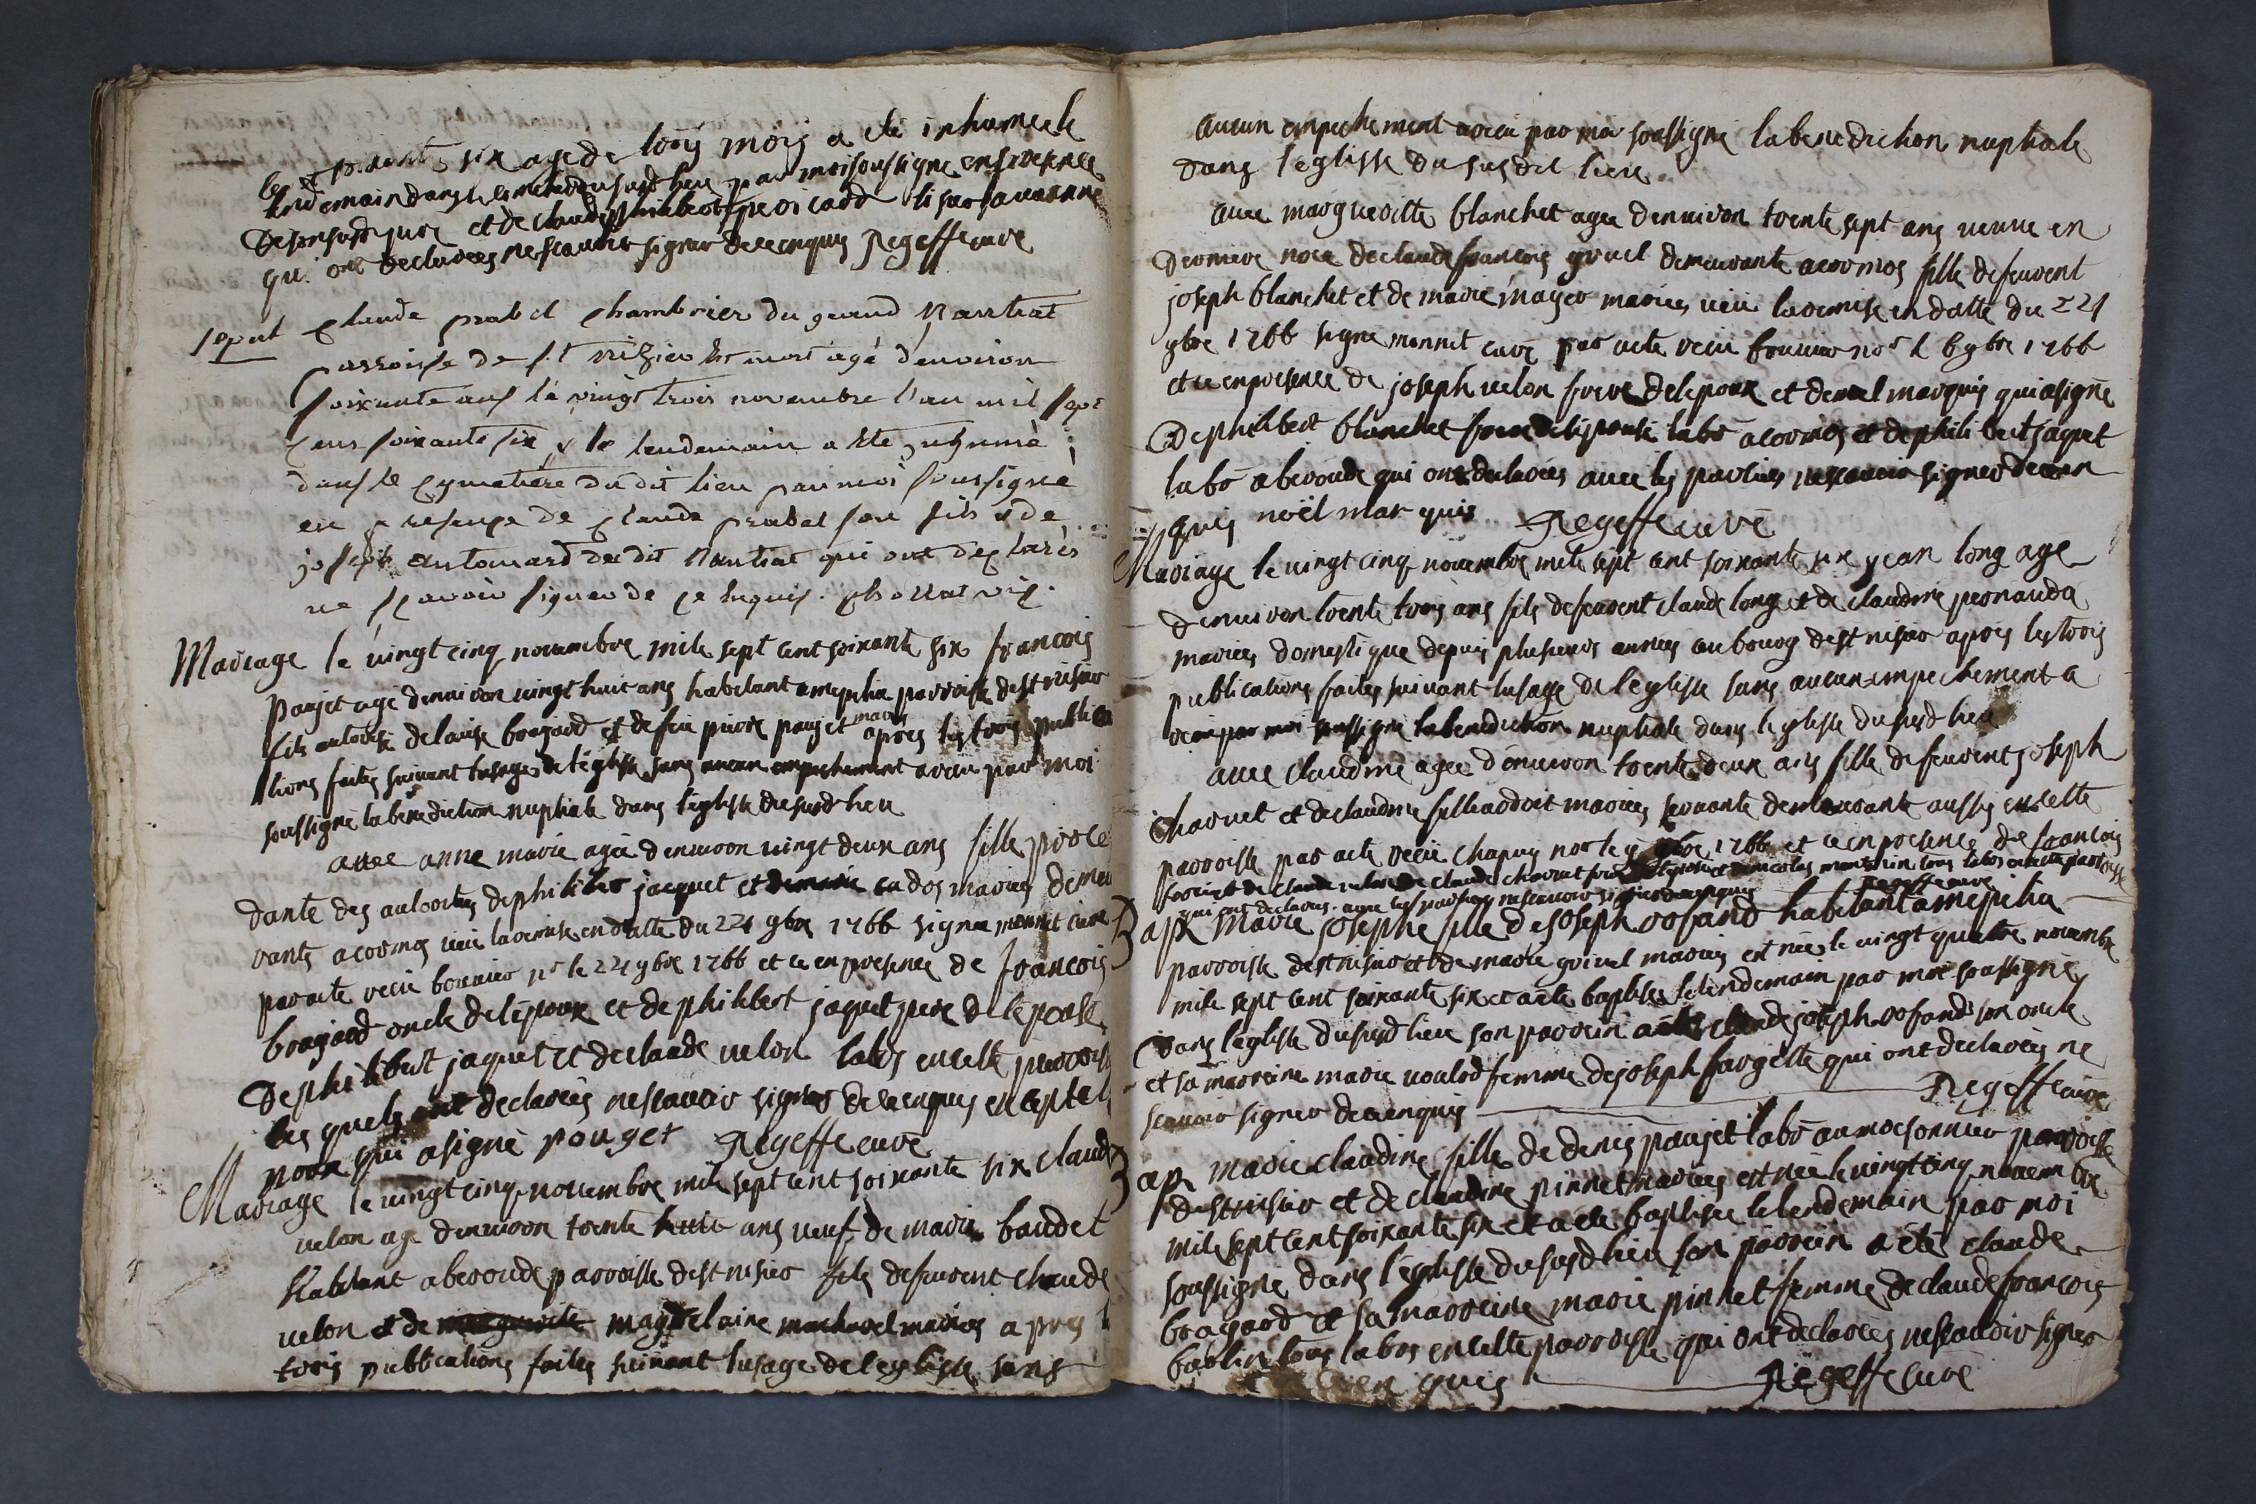 six age de trois mois a été inhumé le
lendemain dans le du susd lieu par moi soussigne en presence
de pere et de claude philibert
qui ont declarees ne scauoir signer de ce enquis Regeffe curé
sepul Claude prabel chambrier du grand Nantiat
parroisse de st nizier est mort agé d'environ
soixante ans le vingt trois novembre l'an mil sept
cens soixante six & le lendemain a ete inhumé
dans le cymetiére du dit lieu par moi soussigné
en presence de claude prabel son fils & de
joseph antoinard du dit Nantiat qui ont déclarés
ne sçavoir signer de ce enquis.
Mariage le vingt cinq novembre mile sept cent soixante six francois
poujet agé denviron vingt huit ans habitant a mepilia parroisse de st nisier
fils de louise bragard et de feu pierre poujet mariés apres les trois publica
tions faites suivant lusage de leglisse sans aucun empechement a recu par moi
soussigné la benediction nuptiale dans leglisse du susd lieu
avec anne marie agée denviron vingt deux ans fille proce
dante des autorites de philibert jacquet et cados mariés demeu
rante a cormos veu la remise en datte du 24 9bre 1766 signe monnet curé
par acte recu bouvier nre le 24 9bre 1766 et ce en presence de francois
bragard oncle de lépoux et de philibert jaquet pere de lepouse
de philibert jaquet et de claude velon labrs en cette parroisse
les quels ont declarées ne scauoir signer de ce enquis excepté l
poux qui a signé pouget Regeffe curé
Mariage le vingt cinq novembre mile sept cent soixante six claude
velon age denviron trente huit ans veuf de marie baudet
habitant a beroude parroisse de st nisier fils de feuvent claude
velon et de magdelaine mariés apres l
trois publications faites suivant lusage de leglisse sans
aucun empechement a recu par moi soussigné la benediction nuptiale
dans léglisse du susdit lieu
avec margueritte blanchet agee denviron trente sept ans veuve en
derniere noce de claude francois gruel demeurante a cormos fille de feuvent
joseph blanchet et de marie mayer mariés veu la remise en datte du 24
9bre 1766 signe monnet curé par acte recu bouvier nre le 6 9bre 1766
et ce en presence de joseph velon frere de lepoux et de noel marquis qui a signé
de philibert blanchet frere de lépouse labr a cormos et de philibert jaquet
labr a beroude qui ont declarées avec les parties ne scauoir signer de ce en
quis noël mar quis Regeffe curé
Mariage le vingt cinq novembre mile sept cent soixante six jean long age
denviron trente trois ans fils de feuvent claude long et de claudine peonauda
mariés domestique depuis plusieurs années au bourg de st nisier apres les trois
publications faites suivant lusage de léglisse sans aucun empechement a
recu par moi soussigné la benediction nuptiale dans leglisse du susd lieu
avec claudine agee d'environ trente deux ans fille de feuvent joseph
charuet et de claudine mariés servante demeurante aussi en cette
parroisse par acte recu chapuy nre le 9bre 1766 et ce en presence de francois
qui ont declares avec les parties ne scauoir signer de ce enquis Regeffe curé
Bapt Marie josephe fille de joseph rofand habitant a mepilia
parroisse de st nisier et de marie grivel mariés est née le vingt quatre novembre
mile sept cent soixante six et a été baptisée le lendemain par moi soussigné
dans leglisse du susd lieu son parrein a été claude joseph rofand son oncle
et sa marreine marie femme de joseph fargette qui ont declarées ne
scauoir signer de ce enquis Regeffe curé
Bap marie claudine fille de denis poujet labr parroisse
de st nisier et de claudine pinnet mariés est née le vingt cinq novembre
mile sept cent soixante six et a été baptisée le lendemain par moi
soussigné dans l'églisse du susd lieu son parrein a été claude
bragard et sa marreine marie pinnet femme de claude francois
tous labrs en cette parroisse qui ont declarées ne scauoir signer
de ce en quis Regeffe curé